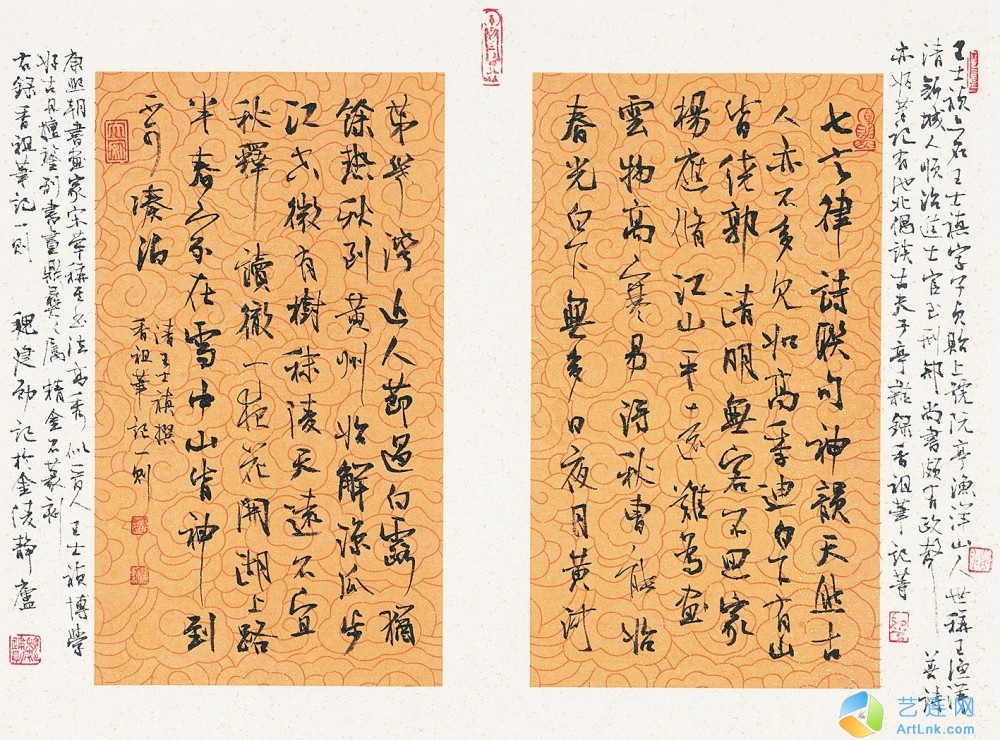 王士禎又名王士禛字子貞貽上號阮亭漁洋山人世稱王漁洋
清新城人順治進士官至刑部尚書頗有政聲 善詩
亦好筆記有池北偶談古夫于亭雜錄香祖筆記等
七言律詩聯句神韻天然古
人亦不多見如高季迪白下有山
皆繞郭清明無客不思家
楊應脩江山平遠難為畫
雲物高寒易得秋曹能始
春光白下無多日夜月黃河
第幾灣近人節過白露猶
餘熱秋到黃州始解涼瓜步
江空微有樹秣陵天遠不宜
秋釋讀徹一夜花開湖上路
半春家在雪中山皆神到
不可湊泊
清王士禛撰
香祖筆記一則
康熙朝書畫家宋犖稱其書法高秀似晉人 王士禎博學
好古且擅鑒別書畫鼎彝之屬精金石篆刻
右錄香祖筆記一則 魏建 記於金陵靜廬
艺连网
ArtLnk.com